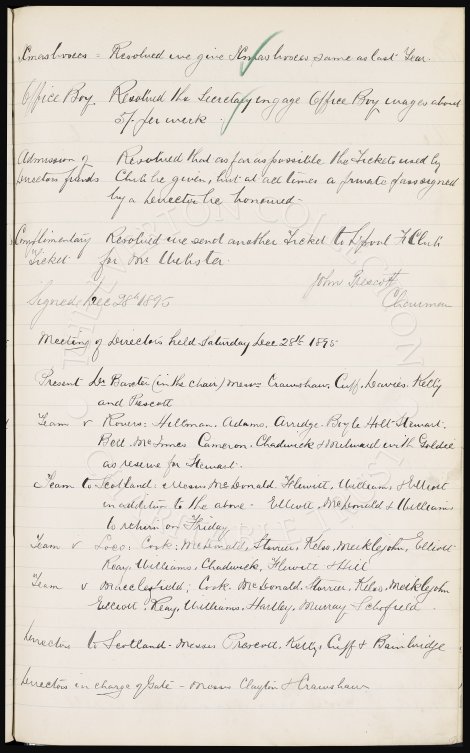 Xmas boxes = Resolved we give Xmas boxes same as last Year.
Office Boy. Resolved the Secretary engage Office Boy wages about
5/- per week
Admission of Resolved that as far as possible the Tickets used by
Directors friends Club be given, but at all times a private pass signed
by a Director be honoured.
Complimentary Resolved we send another Ticket to L'pool F Club
Ticket for Mr Webster.
John Prescott
Signed Dec 28th 1895 Chairman
Meeting of Directors held Saturday Dec 28th 1895
Present Dr Baxter (in the chair) Messrs Crawshaw, Cuff, Davies, Kelly
and Prescott
Team v Rovers: Hillman. Adams. Arridge. Boyle Holt Stewart.
Bell. McInnes Cameron. Chadwick & Milward with Goldie
as reserve for Stewart.
Team to Scotland: Messrs McDonald. Flewitt, Williams & Elliott
in addition to the above. Elliott, McDonald & Williams
to return on Friday
Team v Loco: Cook. McDonald, Storrier, Kelso, Meiklejohn, Elliott
Reay, Williams, Chadwick, Flewitt & Hill
Team v Macclesfield; Cook. McDonald. Storrier, Kelso, Meiklejohn
Elliott, Reay, Williams, Hartley, Murray & Schofield.
Directors to Scotland. Messrs Prescott, Kelly, Cuff & Bainbridge
Directors in charge of Gate - Messrs Clayton & Crawshaw